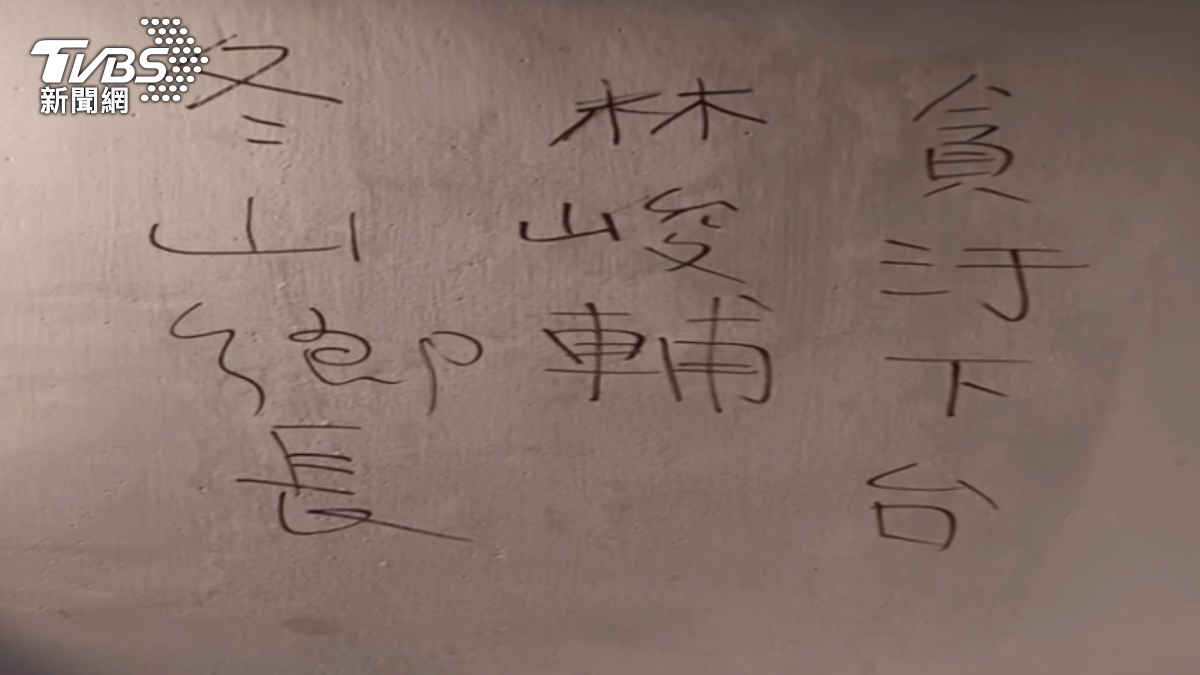 TVBS
新聞網
冬山鄉長
林峻輔
貪汙下台